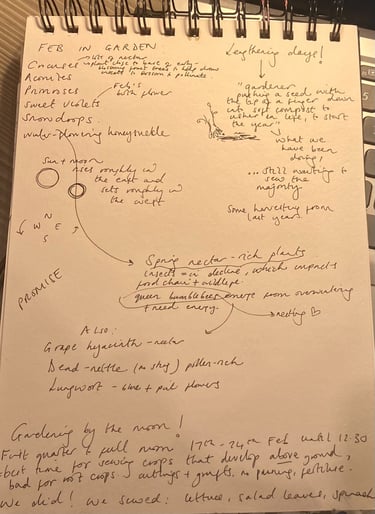 FEB IN GARDEN:
Crocuses - lots of nectar
implant close to base of early
blossoming fruit trees to help draw
insects in blossom & pollinate.
Aconites
Primroses
Feb's
birth flower
Sweet violets
Snowdrops.
winter-flowering honeysuckle
Lengthening days!
"gardener
pushing a seed with
the tip of a finger down
into soft compost to
usher in life, to start
the year"
what we
have been
doing!
... still waiting to
sow the
majority
Some harvesting from
last years.
Sun + moon
rises roughly in
the east and
sets roughly in
the west
N
W E
S
PROMISE
Spring nectar-rich plants
insects = in decline, which impacts
food chain + wildlife.
queen bumblebees emerge from overwintering
+ need energy.
nesting
ALSO:
Grape hyacinth - nectar
Dead-nettle (no sting) pollen-rich
Lungwort - blue + pink flowers
Gardening by the moon!
First quarter + full moon 17th - 24th Feb until 12.30
-best time for sewing crops that develop above ground,
bad for root crops. cuttings + grafts, no pruning, fertilise.
We did! We sowed: lettuce, salad leaves, spinach